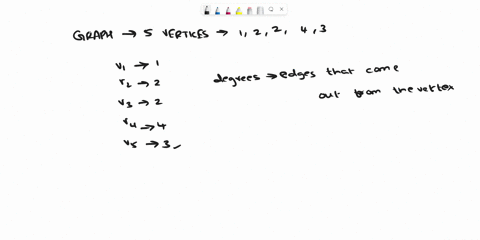 GRAPH → 5 VERTICES → 1, 2, 2, 4, 3
v1 → 1
v2 → 2
v3 → 2
v4 → 4
v5 → 3
degrees → edges that come
out from the vertex